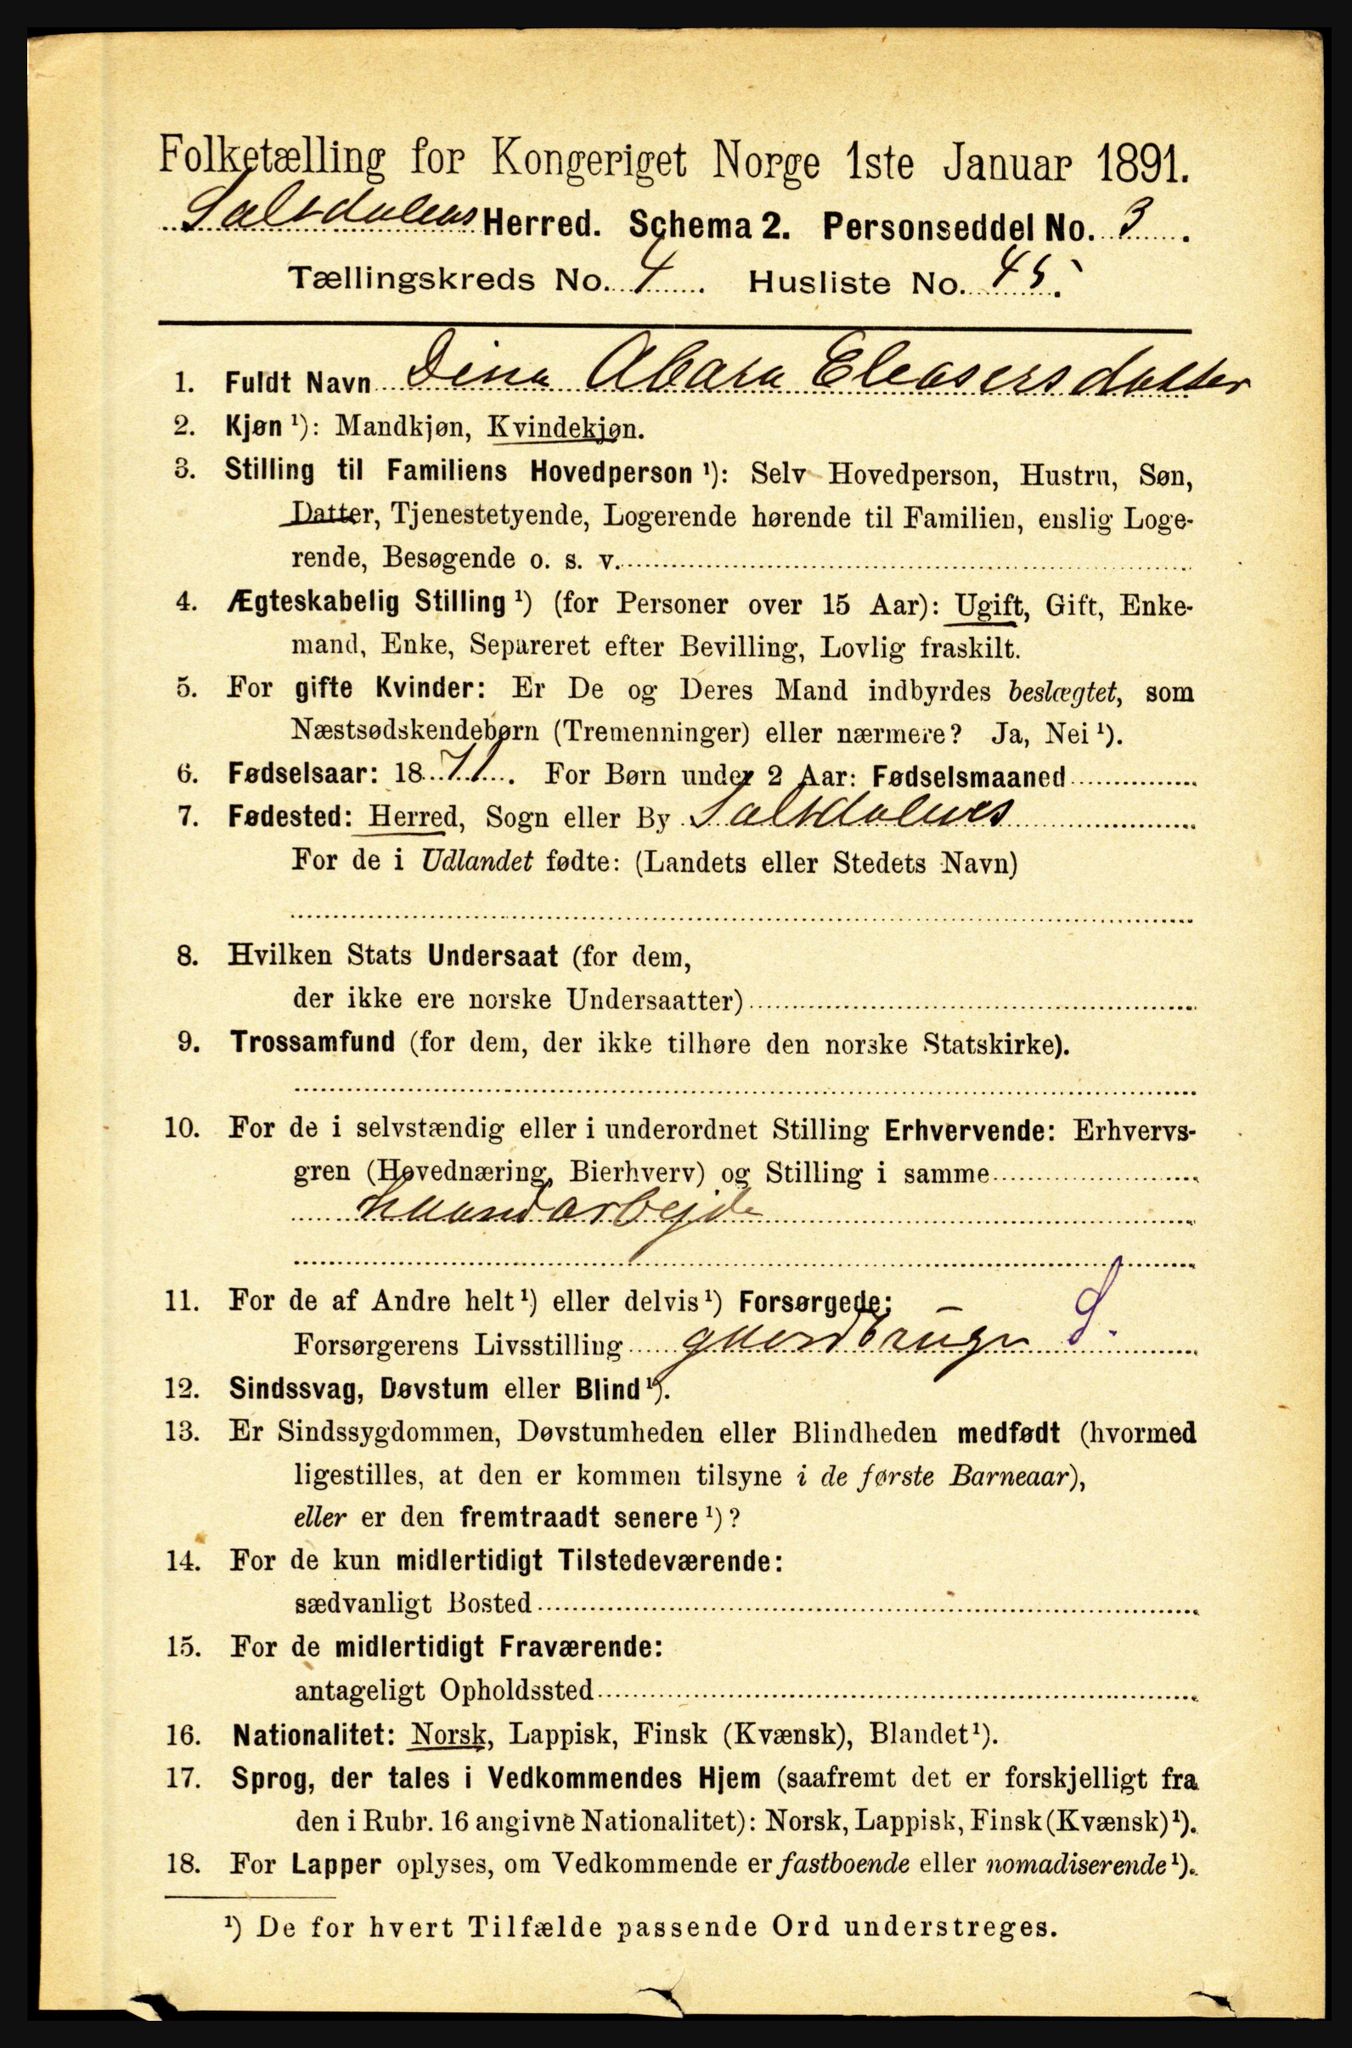 Folketælling for Kongeriget Norge 1ste Januar 1891.
Saltdalens Herred. Schema 2. Personseddel No. 3.
Tællingskreds No. 4. Husliste No. 45.
1. Fuldt Navn Dina Abara Eleasersdatter
2. Kjøn ¹): Mandkjøn, Kvindekjøn.
3. Stilling til Familiens Hovedperson ¹): Selv Hovedperson, Hustru, Søn,
Datter, Tjenestetyende, Logerende hørende til Familien, enslig Loge-
rende, Besøgende o. s. v.
4. Ægteskabelig Stilling ¹) (for Personer over 15 Aar): Ugift, Gift, Enke-
mand, Enke, Separeret efter Bevilling, Lovlig fraskilt.
5. For gifte Kvinder: Er De og Deres Mand indbyrdes beslægtet, som
Næstsødskendebørn (Tremenninger) eller nærmere? Ja, Nei ¹).
6. Fødselsaar: 1871. For Børn under 2 Aar: Fødselsmaaned
7. Fødested: Herred, Sogn eller By Saltdalens
For de i Udlandet fødte: (Landets eller Stedets Navn)
8. Hvilken Stats Undersaat (for dem,
der ikke ere norske Undersaatter)
9. Trossamfund (for dem, der ikke tilhøre den norske Statskirke).
10. For de i selvstændig eller i underordnet Stilling Erhvervende: Erhvervs-
gren (Hovednæring, Bierhverv) og Stilling i samme
Haandarbejde
11. For de af Andre helt ¹) eller delvis ¹) Forsørgede:
Forsørgerens Livsstilling gaardbruger S.
12. Sindssvag, Døvstum eller Blind ¹).
13. Er Sindssygdommen, Døvstumheden eller Blindheden medfødt (hvormed
ligestilles, at den er kommen tilsyne i de første Barneaar),
eller er den fremtraadt senere ¹)?
14. For de kun midlertidigt Tilstedeværende:
sædvanligt Bosted
15. For de midlertidigt Fraværende:
antageligt Opholdssted
16. Nationalitet: Norsk, Lappisk, Finsk (Kvænsk), Blandet ¹).
17. Sprog, der tales i Vedkommendes Hjem (saafremt det er forskjelligt fra
den i Rubr. 16 angivne Nationalitet): Norsk, Lappisk, Finsk (Kvænsk) ¹).
18. For Lapper oplyses, om Vedkommende er fastboende eller nomadiserende ¹).
¹) De for hvert Tilfælde passende Ord understreges.